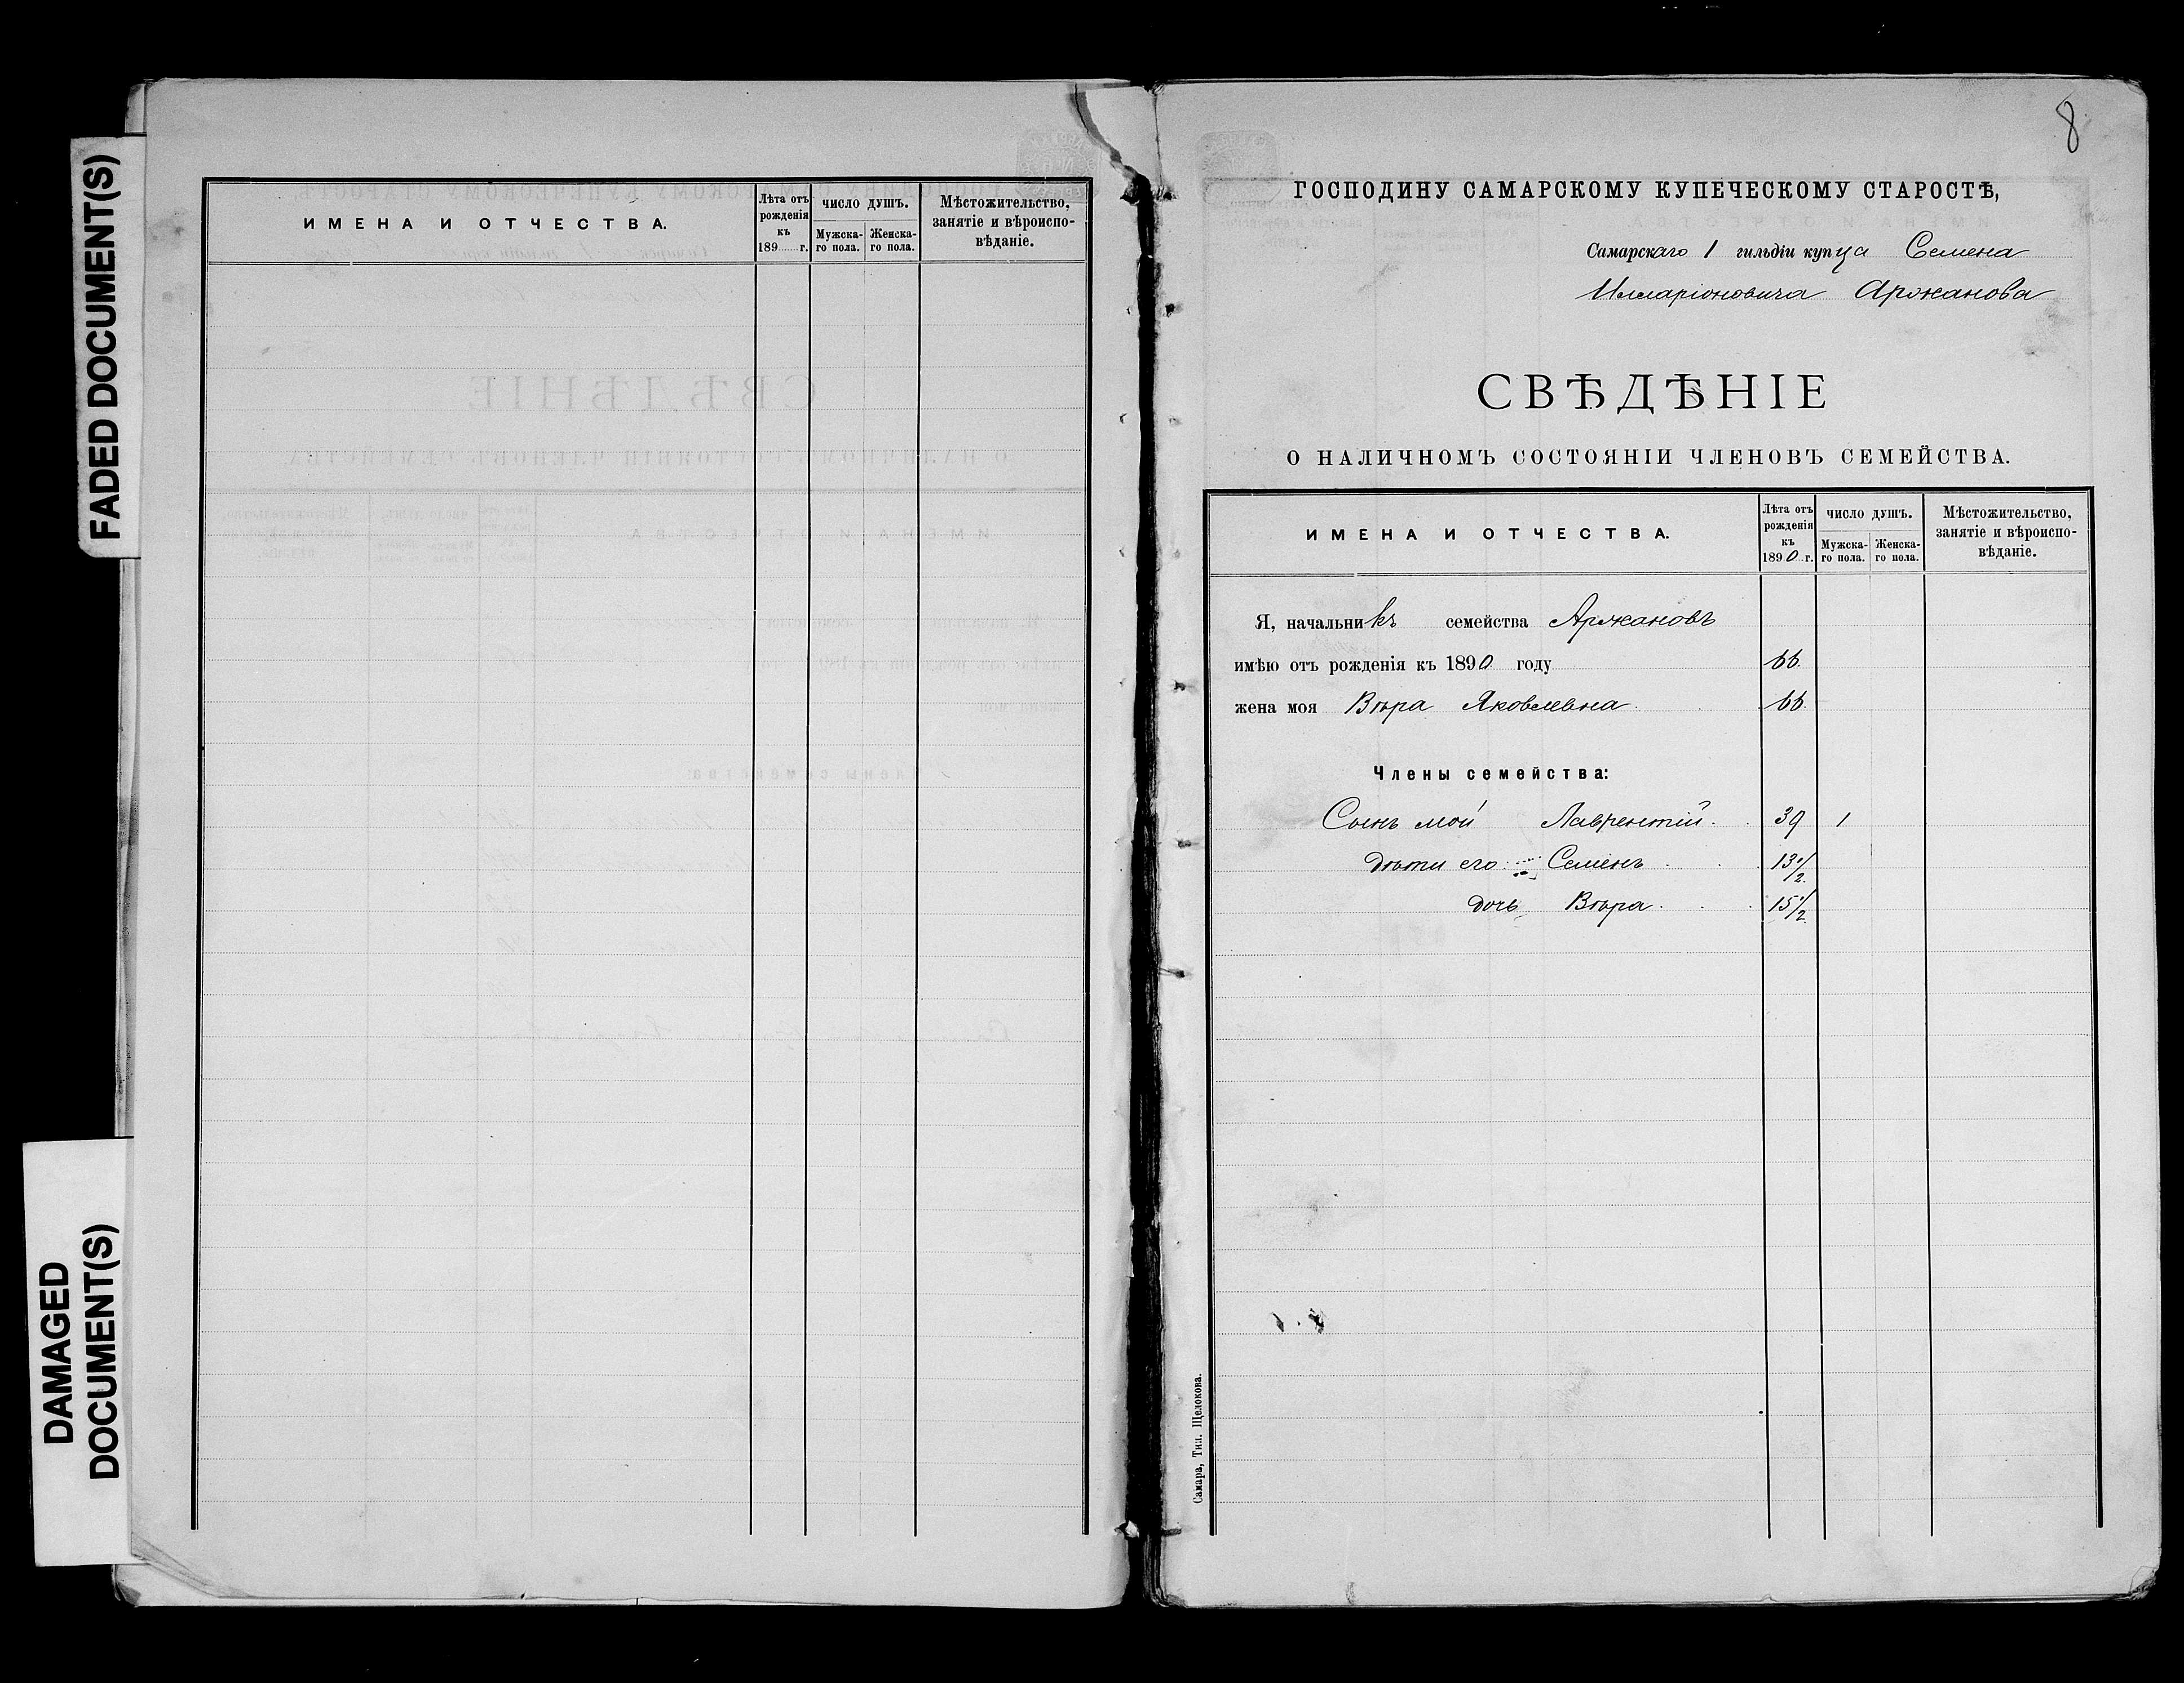 FADED DOCUMENT(S)
DAMAGED
DOCUMENT(S)
ИМЕНА И ОТЧЕСТВА.
Лѣта отъ рожденія къ 189 г.
ЧИСЛО ДУШЪ.
Мужска-го пола.
Женска-го пола.
Мѣстожительство, занятіе и вѣроиспо-вѣданіе.
8
ГОСПОДИНУ САМАРСКОМУ КУПЕЧЕСКОМУ СТАРОСТѢ,
Самарскаго 1 гильдіи купца Семена
Илларіоновича Аржанова
СВѢДѢНІЕ
О НАЛИЧНОМЪ СОСТОЯНІИ ЧЛЕНОВЪ СЕМЕЙСТВА.
ИМЕНА И ОТЧЕСТВА.
Лѣта отъ рожденія къ 1890 г.
ЧИСЛО ДУШЪ.
Мужска-го пола.
Женска-го пола.
Мѣстожительство, занятіе и вѣроиспо-вѣданіе.
Я, начальникъ семейства Аржановъ
имѣю отъ рожденія къ 1890 году 66
жена моя Вѣра Яковлевна 66
Члены семейства:
Сынъ мой Лаврентій. 39 1
дѣти его: Семенъ 13 1/2
дочь Вѣра. 15 1/2
Самара, Тип. Щелокова.